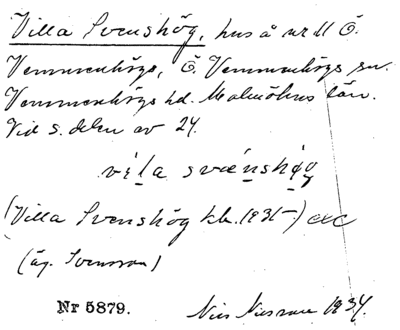 Villa Svenshög, hus å nr 11 Ö.
Vemmenhögs, Ö. Vemmenhögs sn.
Vemmenhögs hd. Malmöhus län.
Vid s. delen av 24.
vila svenshög
(Villa Svenshög kbr. 1931-) exc
(äg. Svensson)
Nr 5879.
Nils 1934.